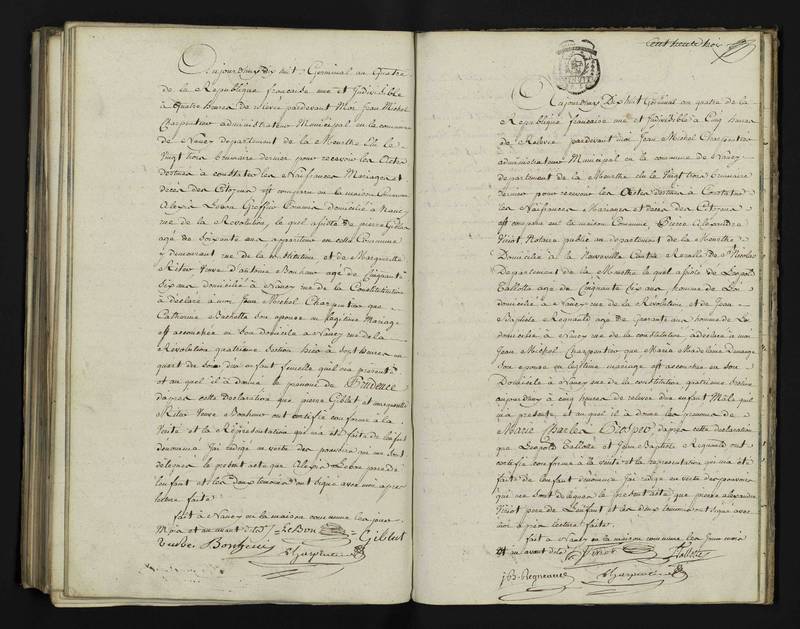 Aujourdhuy Dix huit Germinal an Quatre
de la République française une et Indivisible
à Quatre heures de Relevé pardevant Moi Jean Michel
Charpentier administrateur Municipal en la commune
de Nancy département de la Meurthe Elu le
Vingt trois brumaire dernier pour recevoir les Actes
destinés à constater les Naissances Mariages et
décès des Citoyens est comparu en la maison Commune
Alexis domicilié à Nancy
rue de la Révolution, lequel assisté de pierre Giblut
agé de Soixante ans appariteur en cette Commune
y demeurant rue de la Constitution et de Marguerite
Veuve d'antoine Bonheur agée de Cinquante
Six ans domiciliée à Nancy rue de la Constitution
a déclaré à moi Jean Michel Charpentier que
Catherine Bachette son epouse en légitime Mariage
est accouchée en son Domicile à Nancy rue de la
Révolution quatrieme Section hier à sept heures un
quart du Soir d'un enfant femelle qu'il m'a presenté
et au quel il a donné le prénom de Prudence
d'après cette déclaration que pierre Giblut et marguerite
Veuve Bonheur ont certifié conforme à la
Verité et la Représentation qui m'a été faite de l'enfant
denommé J'ai rédigé en vertu des pouvoirs qui me sont
delegués le présent acte que Alexis pere de
l'enfant et les deux temoins ont signé avec moi après
lecture faite.
fait à Nancy en la maison commune les jour
Mois et an avant dits
Giblut
veuve Bonheur
Charpentier
Cent trente trois
Aujourdhuy Dix huit Germinal an quatre de la
République française une et Indivisible à Cinq heures
de Relevée pardevant moi Jean Michel Charpentier
administrateur Municipal en la commune de Nancy
departement de la Meurthe Elu le Vingt trois brumaire
dernier pour recevoir les Actes destinés à Constater
les Naissances Mariages et décès des Citoyens
est comparu en la maison Commune Pierre Alexandre
Notaire public au departement de la Meurthe
Domicilié à la Neuveville Canton de Nicolas
Departement de la Meurthe lequel assisté de Léopold
agé de Cinquante Six ans homme de Loi
domicilié à Nancy rue de la Révolution et de Jean
Baptiste Regnault agé de quarante ans homme de Loi
domicilié à Nancy rue de la constitution a déclaré à moi
Jean Michel Charpentier que Marie Madelaine
Son epouse en légitime mariage est accouchée en son
Domicile à Nancy rue de la constitution quatrieme Section
aujourdhuy à cinq heures de relevée d'un enfant Mâle qu'il
m'a presenté, et au quel il a donné les prenoms de
Marie Charles Prosper d'après cette déclaration
que Léopold et Jean Baptiste Regnault ont
certifié conforme à la verité et la representation qui m'a été
faite de l'enfant denommé j'ai redigé en vertu des pouvoirs
qui me sont delegués le present acte que pierre alexandre
pere de l'enfant et les deux temoins ont signé avec
moi après lecture faite.
fait à Nancy en la maison commune les jour mois
et an avant dits
jB. Regneault
Charpentier